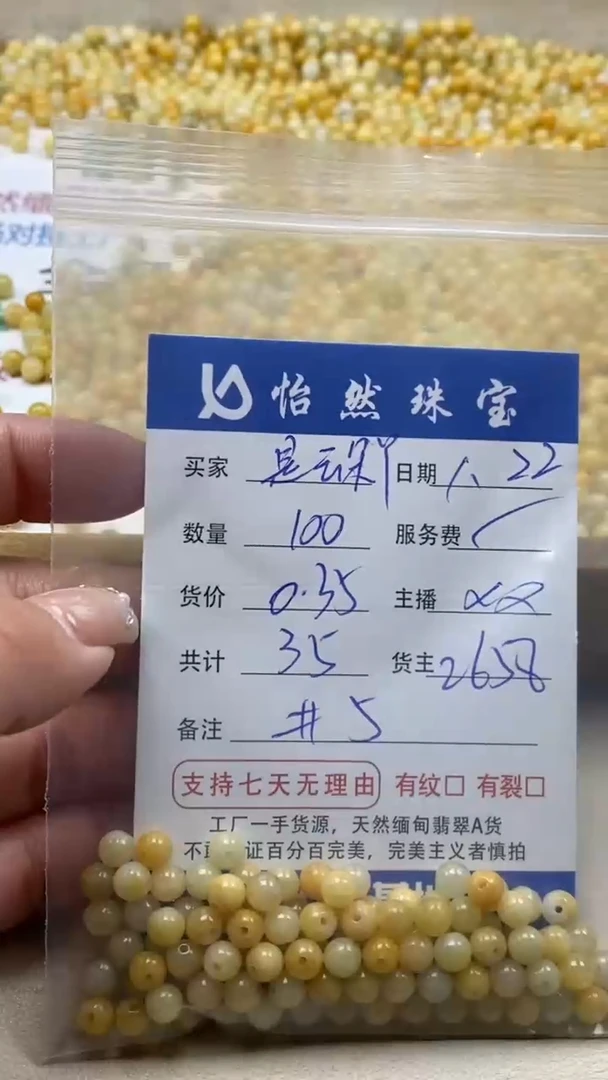 怡然珠宝
买家 日期 1.22
数量 100 服务费
货价 0.35 主播
共计 35 货主 2658
备注 #5
支持七天无理由 有纹□ 有裂□
工厂一手货源，天然缅甸翡翠A货
不 证百分百完美，完美主义者慎拍